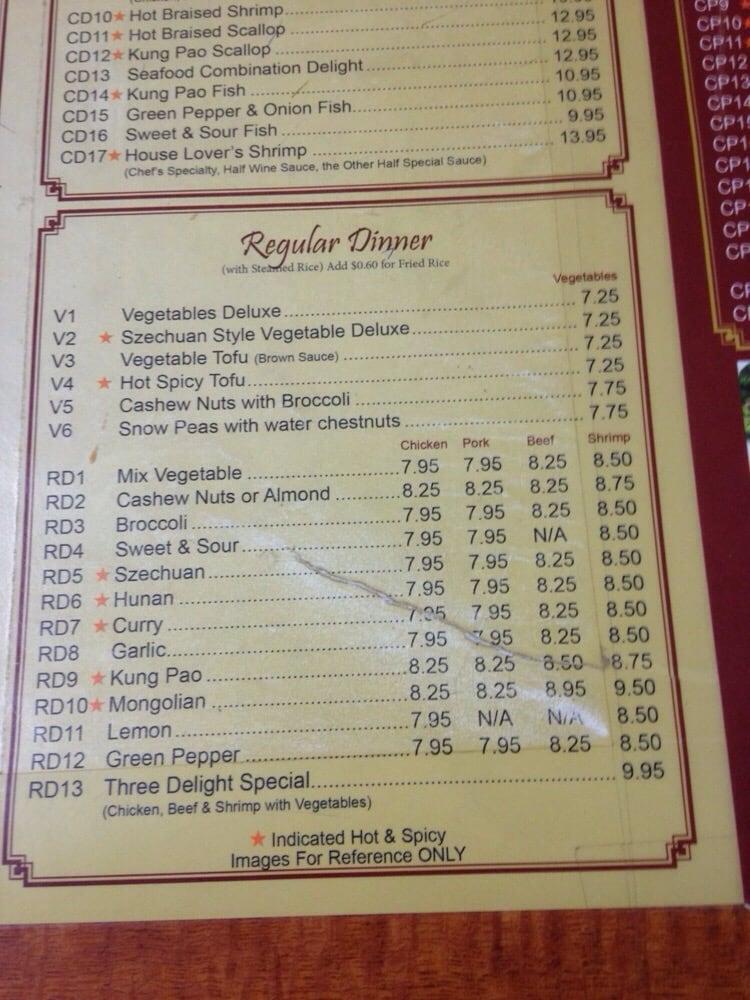 CD10★ Hot Braised Shrimp 12.95
CD11★ Hot Braised Scallop 12.95
CD12★ Kung Pao Scallop 12.95
CD13 Seafood Combination Delight 10.95
CD14★ Kung Pao Fish 10.95
CD15 Green Pepper & Onion Fish 9.95
CD16 Sweet & Sour Fish 13.95
CD17★ House Lover's Shrimp
(Chef's Specialty, Half Wine Sauce, the Other Half Special Sauce)
Regular Dinner
(with Steamed Rice) Add $0.60 for Fried Rice
Vegetables
V1 Vegetables Deluxe 7.25
V2 ★ Szechuan Style Vegetable Deluxe 7.25
V3 Vegetable Tofu (Brown Sauce) 7.25
V4 ★ Hot Spicy Tofu 7.25
V5 Cashew Nuts with Broccoli 7.75
V6 Snow Peas with water chestnuts 7.75
Chicken Pork Beef Shrimp
RD1 Mix Vegetable 7.95 7.95 8.25 8.50
RD2 Cashew Nuts or Almond 8.25 8.25 8.25 8.75
RD3 Broccoli 7.95 7.95 8.25 8.50
RD4 Sweet & Sour 7.95 7.95 N/A 8.50
RD5 ★ Szechuan 7.95 7.95 8.25 8.50
RD6 ★ Hunan 7.95 7.95 8.25 8.50
RD7 ★ Curry 7.95 7.95 8.25 8.50
RD8 Garlic 7.95 7.95 8.25 8.50
RD9 ★ Kung Pao 8.25 8.25 8.50 8.75
RD10★ Mongolian 8.25 8.25 8.95 9.50
RD11 Lemon 7.95 N/A N/A 8.50
RD12 Green Pepper 7.95 7.95 8.25 8.50
RD13 Three Delight Special 9.95
(Chicken, Beef & Shrimp with Vegetables)
★ Indicated Hot & Spicy
Images For Reference ONLY
CP9
CP10
CP11
CP12
CP13